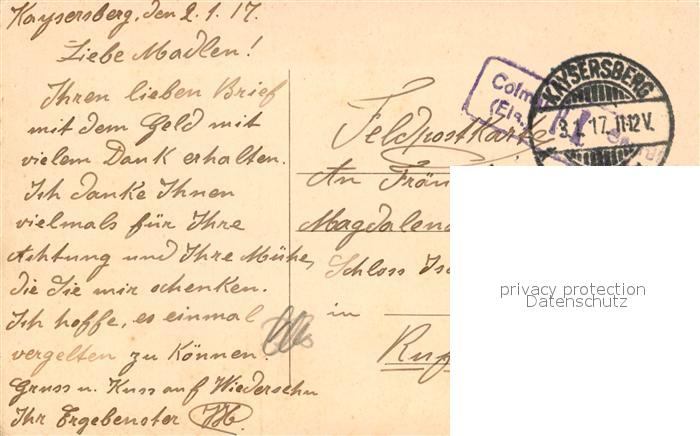 Kaysersberg, den 2.1.17.
Liebe Madlen!
Ihren lieben Brief
mit dem Geld mit
vielem Dank erhalten.
Ich danke Ihnen
vielmals für Ihre
Achtung und Ihre Mühe,
die Sie mir schenken.
Ich hoffe, es einmal
vergelten zu können.
Gruss u. Kuss auf Wiedersehn
Ihr Ergebenster
Feldpostkarte
An
Schloss
in
KAYSERSBERG
3.1.17.11-12V.
privacy protection
Datenschutz